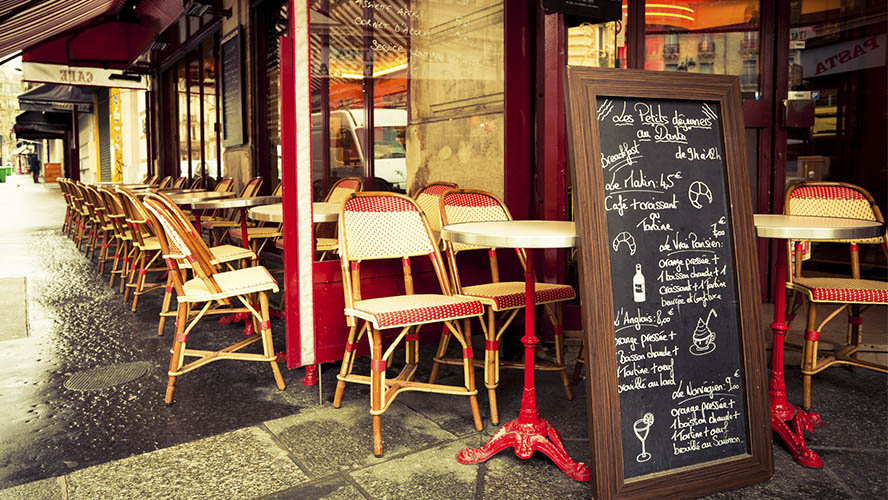 ASSIETTE
CORNET APERO
Service
CAFE
PASTA
Les Petits déjeuners
au Dante
Breakfast
de 9h à 12h
Le Matin 4,5€
Café + croissant
ou
Tartine
Le Vrai Parisien: 7,00€
orange pressée +
1 boisson chaude +
Croissant + 1 Tartine
beurre et Confit
L'Anglais: 8,00€
orange pressée +
Boisson chaude +
1 Tartine + œuf
brouillé au lard
Le Norvegien 9,00€
orange pressée +
1 boisson chaude
1 Tartine + œuf
brouillé au Saumon